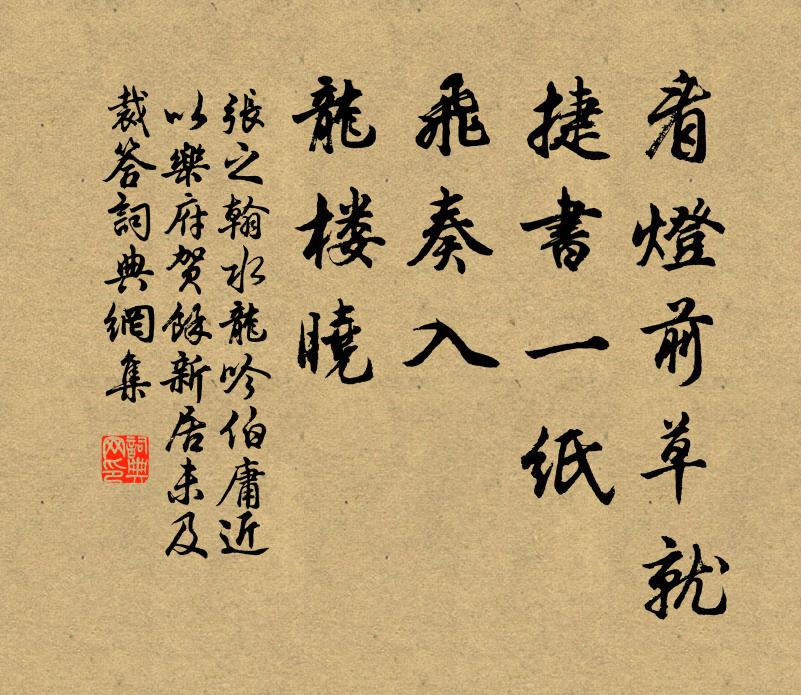 看燈前草就
捷書一紙
飛奏入
龍楼曉
張之翰水龍吟伯庸近
以樂府贺餘新居未及
裁答詞典網集
詞典网印